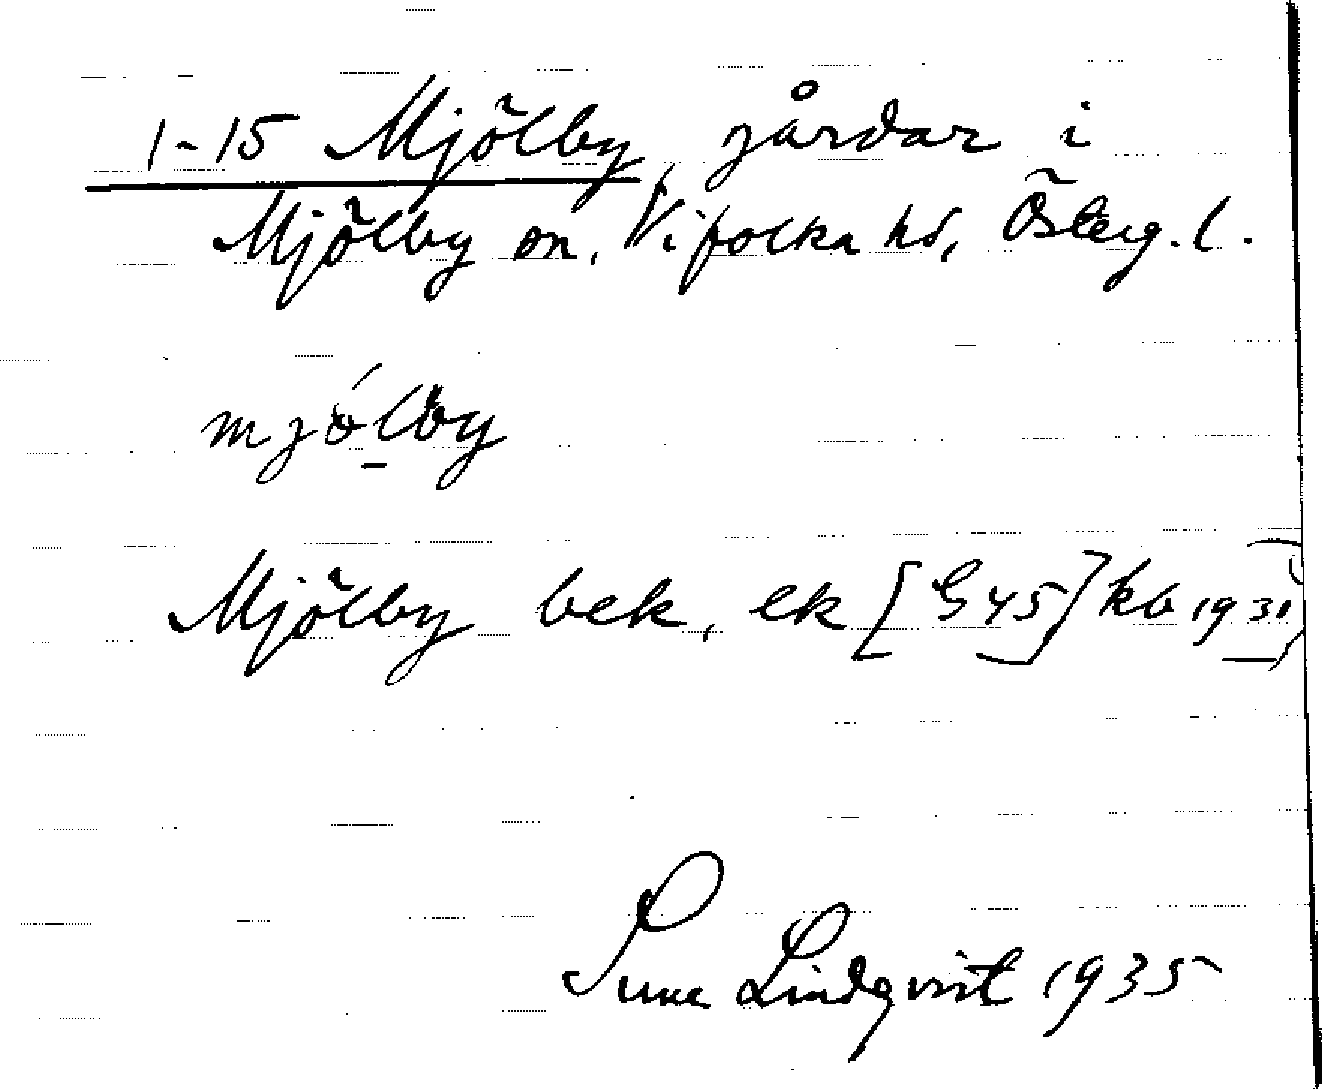 1-15 Mjölby gårdar i
Mjölby sn, Vifolka hd, Österg. l.
mjölby
Mjölby bek, ek [G 45] kb 1931
Sune Lindqvist 1935